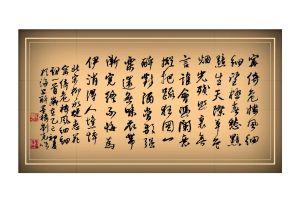 倚危楼風細
細望極春愁黯
黯生天際草色
烟光残照裏無
言誰會憑闌意
擬把疏狂图一
醉對酒當歌强
樂還無味衣帶
漸寬終不悔為
伊消得人憔悴
北宋柳永蝶恋花
倚危楼風細細
詞一首